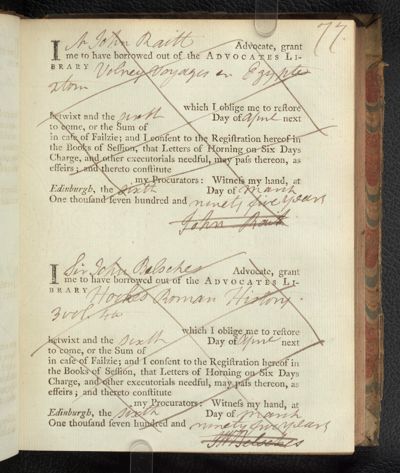 77.
I Mr John Raitt Advocate, grant
me to have borrowed out of the ADVOCATES LI-
BRARY Volney Voyages en Egypte
2 tom
which I oblige me to restore
betwixt and the sixth Day of April next
to come, or the Sum of
in case of Failzie; and I consent to the Registration hereof in
the Books of Session, that Letters of Horning on Six Days
Charge, and other executorials needful, may pass thereon, as
effeirs; and thereto constitute
my Procurators: Witness my hand, at
Edinburgh, the sixth Day of March
One thousand seven hundred and ninety five years
John Raitt
I Sir John Belsches Advocate, grant
me to have borrowed out of the ADVOCATES LI-
BRARY Hooke's Roman History.
3 vol. 4to
which I oblige me to restore
betwixt and the sixth Day of April next
to come, or the Sum of
in case of Failzie; and I consent to the Registration hereof in
the Books of Session, that Letters of Horning on Six Days
Charge, and other executorials needful, may pass thereon, as
effeirs; and thereto constitute
my Procurators: Witness my hand, at
Edinburgh, the sixth Day of March
One thousand seven hundred and ninety five years
Belsches